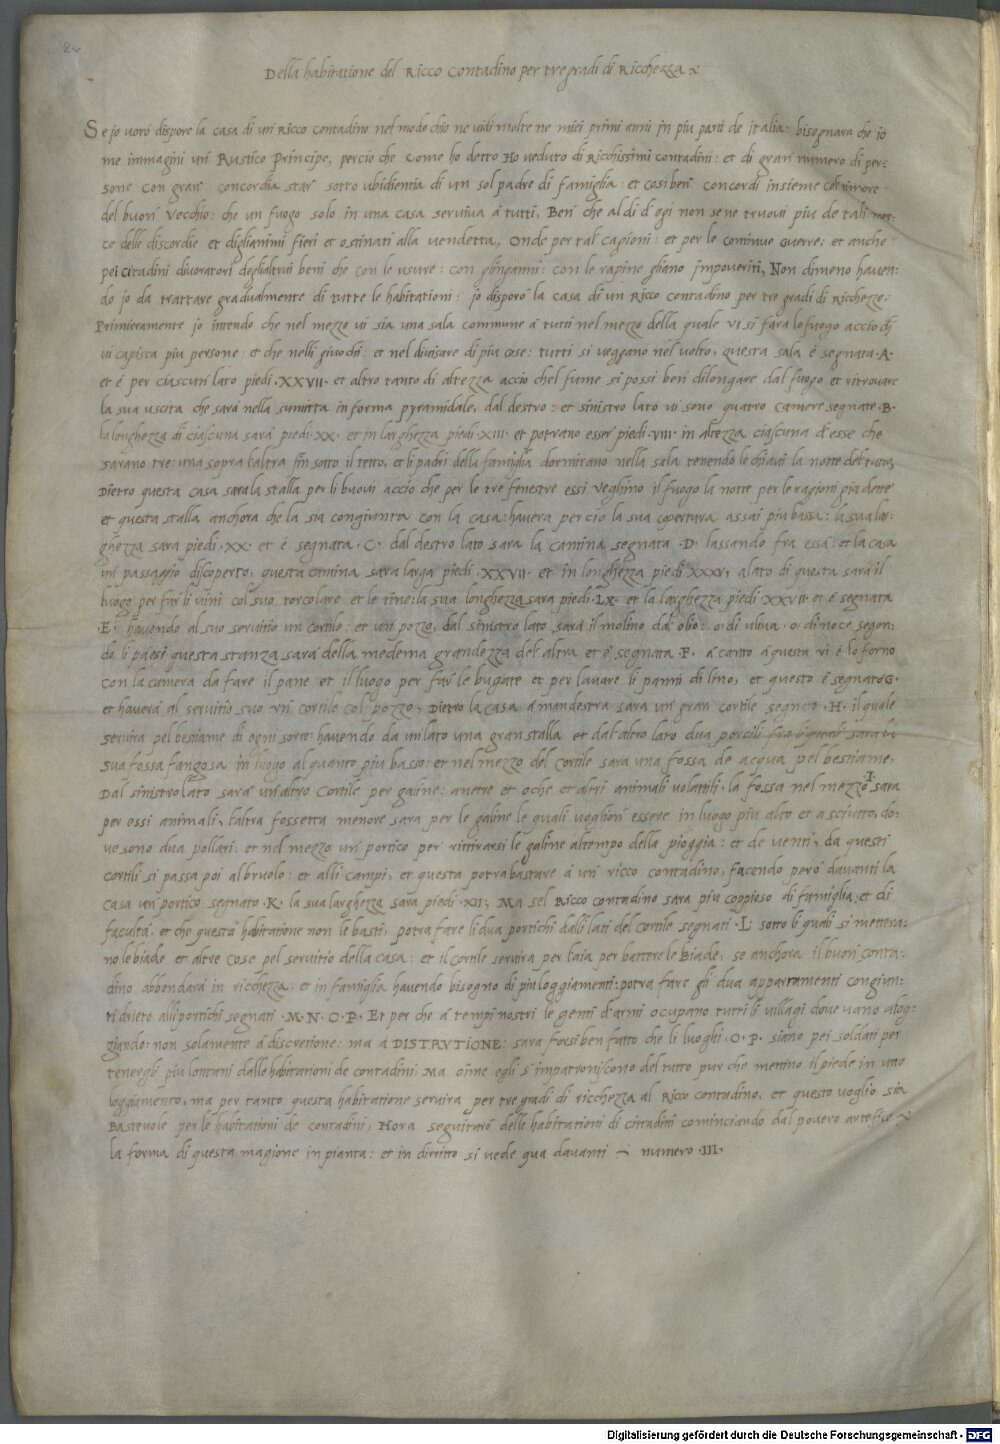 2v
Della habitatione del Ricco Contadino per tre gradi di Ricchezza
Se jo voró dispore la casa di un Ricco contadino nel modo chio ne vidi molte ne miei primi anni in piu parti de italia: bisognara che io
me immagini un Rustico Principe, percio che come ho detto Ho veduto di Ricchissimi contadini: et di gran numero di per:
sone con gran concordia star sotto ubidientia di un sol padre di famiglia: et cosi ben concordi insieme col timore
del buon Vecchio: che un fuogo solo in una casa serviva á tutti. Ben che al di d'ogi non se ne truovi piu de tali mer:
ce delle discordie et di gli animi fieri et ostinati alla vendetta, Onde per tal cagioni: et per le continue Guerre: et anche
pei Citadini divoratori degli altrui beni che con le usure: con gl'inganni: con le rapine gli ano impoveriti, Non dimeno haven:
do jo da trattare gradualmente di tutte le habitationi: jo disporó la casa di un Ricco contadino per tre gradi di Ricchezze,
Primieramente jo intendo che nel mezzo vi sia una sala commune á tutti nel mezzo della quale vi si fara lo fuogo accio ch
vi capisca piu persone: et che nelli giuochi: et nel divisare di piu cose: tutti si veggano nel volto, questa sala é segnata ·A·
et é per ciascun lato piedi ·XXVII· et altro tanto di altezza accio chel fume si possi ben dilongare dal fuogo et ritrovare
la sua uscita che sará nella sumitta in forma pyramidale, dal destro et sinistro lato vi sono quatro camere segnate ·B·
la longhezza di ciascuna sará piedi ·XX· et in larghezza piedi ·XIII· et potrano esser piedi ·VIII· in altezza ciascuna d'esse che
sarano tre: una sopra l'altra fin sotto il tetto, et li padri della famiglia dormirano nella sala tenendo le chiavi la notte del tutto,
Dietro questa casa sara la stalla per li buovi accio che per le tre fenestre essi veghino il fuogo la notte per le ragioni gia dette
et questa stalla anchora che la sia congiunta con la casa: havera percio la sua copertura assai piu bassa: la sua lar:
ghezza sara piedi ·XX· et é segnata ·C· dal destro lato sara la cantina segnata ·D· lassando fra essa: et la casa
un passaggio discoperto, questa canina sara larga piedi ·XXVII· et in longhezza piedi XXXV, a lato di questa sará il
luogo per far li vini col suo torcolare et le tine: la sua longhezza sara piedi ·LX· et la larghezza piedi XXVII· et é segnata
·E· havendo al suo servitio un cortile: et un pozzo, dal sinistro lato sará il molino dal olio: o di uliva o di noce segon:
do li paesi questa stanza sará della medema grandezza del altra et é segnata ·F· á canto á questa vi é lo forno
con la camera da fare il pane et il luogo per far le bugate et per lavare li panni di lino, et questo é segnato ·G·
et haverá al servitio suo un cortile col pozzo, Dietro la casa á man destra sara un gran cortile segnato ·H· il quale
servira pel bestiame di ogni sorte: havendo da un lato una gran stalla et dal altro lato dua porcili fra li quali sara la
sua fossa fangosa in luogo alquanto piu basso: et nel mezzo del cortile sara una fossa de acqua pel bestiame,
Dal sinistro lato sará un'altro Cortile per galine: anetre et oche et altri animali volattili. la fossa nel mezzo ·I· sara
per essi animali, l'altra fossetta menore sara per le galine le quali voglion essere in luogo piu alto et asciutto, do:
ve sono dua pollari: et nel mezzo un portico per rittirarsi le galine al tempo della pioggia: et de venti, da questi
cortili si passa poi al bruolo: et alli campi, et questa potra bastare á un ricco contadino, facendo peró davanti la
casa un portico segnato ·K· la sua larghezza sara piedi ·XII, Ma sel Ricco Contadino sara piu coppioso di famiglia, et di
facultá, et che questa habitatione non le basti, potra fare li dua portichi dalli lati del cortile segnati ·L· sotto li quali si mettera:
no le biade et altre cose pel servitio della casa: et il cortile servira per l'aia per battere le Biade, se anchora il buon conta:
dino abbondará in ricchezza: et in famiglia havendo bisogno di piu loggiamenti: potra fare gli dua appartamenti congiun:
ti drieto alli portichi segnati ·M·N·O·P· Et per che á tempi nostri le genti d'armi ocupano tutti li villagi dove vano alog:
giando: non solamente á discretione: ma á DISTRVTIONE: sara forsi ben fatto che li luoghi ·O·P· siano pei soldati per
tenergli piu lontani dalle habitationi de contadini, Ma oime egli s'impatroniscono del tutto pur che mettino il piede in uno
loggiamento, ma per tanto questa habitatione servira per tre gradi di ricchezza al Ricco contadino, et questo voglio sia
Bastevole per le habitationi de contadini, Hora seguitaró delle habitationi di cittadini cominciando dal povero artefice
la forma di questa magione in pianta: et in diritto si vede qua davanti numero ·III·
Digitalisierung gefördert durch die Deutsche Forschungsgemeinschaft · DFG